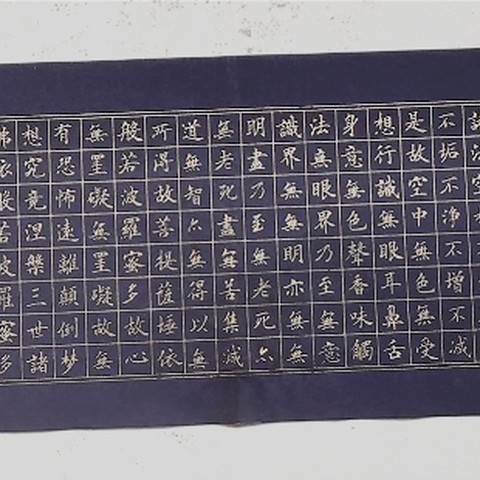 不垢不淨不增不减
是故空中無色無受
想行識無眼耳鼻舌
身意無色聲香味觸
法無眼界乃至無意
識界無無明亦無無
明盡乃至無老死亦
無老死盡無苦集滅
道無智亦無得以無
所得故菩提薩埵依
般若波羅蜜多故心
無罣礙無罣礙故無
有恐怖遠離顛倒梦
想究竟涅槃三世諸
佛依般若波羅蜜多